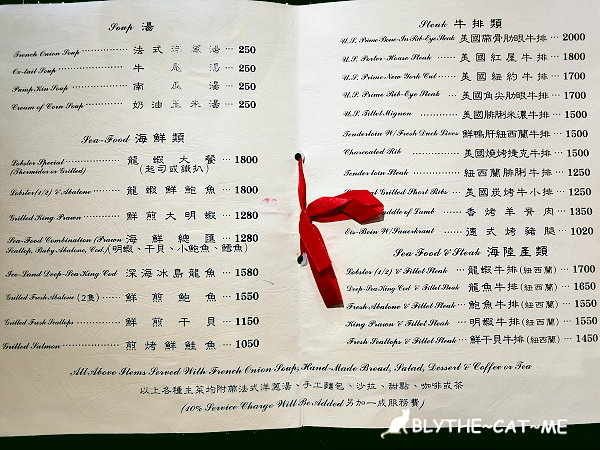 Soup 湯
French Onion Soup 法式洋蔥湯 250
Ox-tail Soup 牛尾湯 250
Pump Kin Soup 南瓜湯 250
Cream of Corn Soup 奶油玉米湯 250
Sea-Food 海鮮類
Lobster Special 龍蝦大餐 1800
(Thermidor or Grilled) (起司或鐵扒)
Lobster (1/2) & Abalone 龍蝦鮮鮑魚 1800
Grilled King Prawn 鮮煎大明蝦 1280
Sea-Food Combination (Prawn 海鮮總匯 1280
Scallop, Baby Abalone, Cod.) (明蝦、干貝、小鮑魚、鱈魚)
Ice-Land Deep-Sea King Cod 深海冰島龍魚 1580
Grilled Fresh Abalone (2隻) 鮮煎鮑魚 1550
Grilled Fresh Scallops 鮮煎干貝 1150
Grilled Salmon 煎烤鮮鮭魚 1050
Steak 牛排類
U.S. Prime Bone-In Rib-Eye Steak 美國帶骨肋眼牛排 2000
U.S. Porter-House Steak 美國紅屋牛排 1800
U.S. Prime New York Cut 美國紐約牛排 1700
U.S. Prime Rib-Eye Steak 美國角尖肋眼牛排 1700
U.S. Tillet Mignon 美國腓脷米濃牛排 1500
Tenderloin W/Fresh Duck Lives 鮮鴨肝紐西蘭牛排 1500
Charcoaled Rib 美國燒烤捷克牛排 1500
Tenderloin Steak 紐西蘭腓脷牛排 1250
Grilled Short Ribs 美國炭烤牛小排 1250
of Lamb 香烤羊脊肉 1350
Eis-Bein W/Sauerkraut 德式烤豬腿 1020
Sea Food & Steak 海陸產類
Lobster (1/2) & Fillet Steak 龍蝦牛排(紐西蘭) 1700
Deep-Sea King Cod & Fillet Steak 龍魚牛排(紐西蘭) 1650
Fresh Abalone & Fillet Steak 鮑魚牛排(紐西蘭) 1550
King Prawn & Fillet Steak 明蝦牛排(紐西蘭) 1550
Fresh Scallops & Fillet Steak 鮮干貝牛排(紐西蘭) 1450
All Above Items Served With French Onion Soup, Hand-Made Bread, Salad, Dessert & Coffee or Tea
以上各種主菜均附帶法式洋蔥湯、手工麵包、沙拉、甜點、咖啡或茶
(10% Service Charge Will Be Added 另加一成服務費)
BLYTHE~CAT~ME